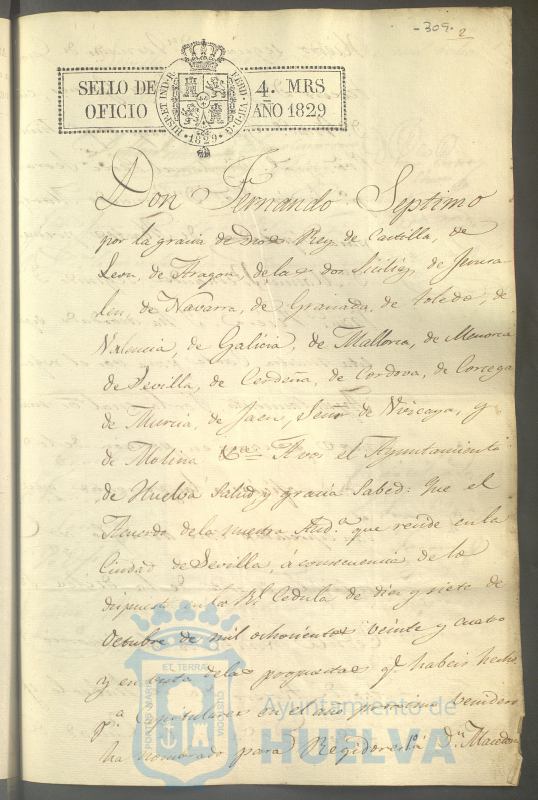 - 309. 2
SELLO DE 4. MRS
OFICIO AÑO 1829
HISP. ET IND. R. FERD. VII. D. G.
· 1829 ·
Don Fernando Septimo
por la gracia de Dios Rey de Castilla, de
Leon, de Aragon, de las dos Sicilias, de Jerusa-
len, de Navarra, de Granada, de Toledo, de
Valencia, de Galicia, de Mallorca, de Menorca
de Sevilla, de Cerdeña, de Cordova, de Corcega
de Murcia, de Jaen, Señor de Vizcaya, y
de Molina &a. A vos el Ayuntamiento
de Huelva Salud y gracia Sabed: Que el
Acuerdo de la nuestra Auda. que reside en la
Ciudad de Sevilla, á consecuencia de lo
dispuesto en la Rl. Cedula de diez y siete de
Octubre de mil ochocientos veinte y cuatro
y en vista de las propuestas q. habeis hecho
pa. Capitulares en el año proximo venidero
ha nombrado para Regidores á Dn.
PORTUS MARIS ET TERRAE CUSTODIA
Ayuntamiento de
HUELVA